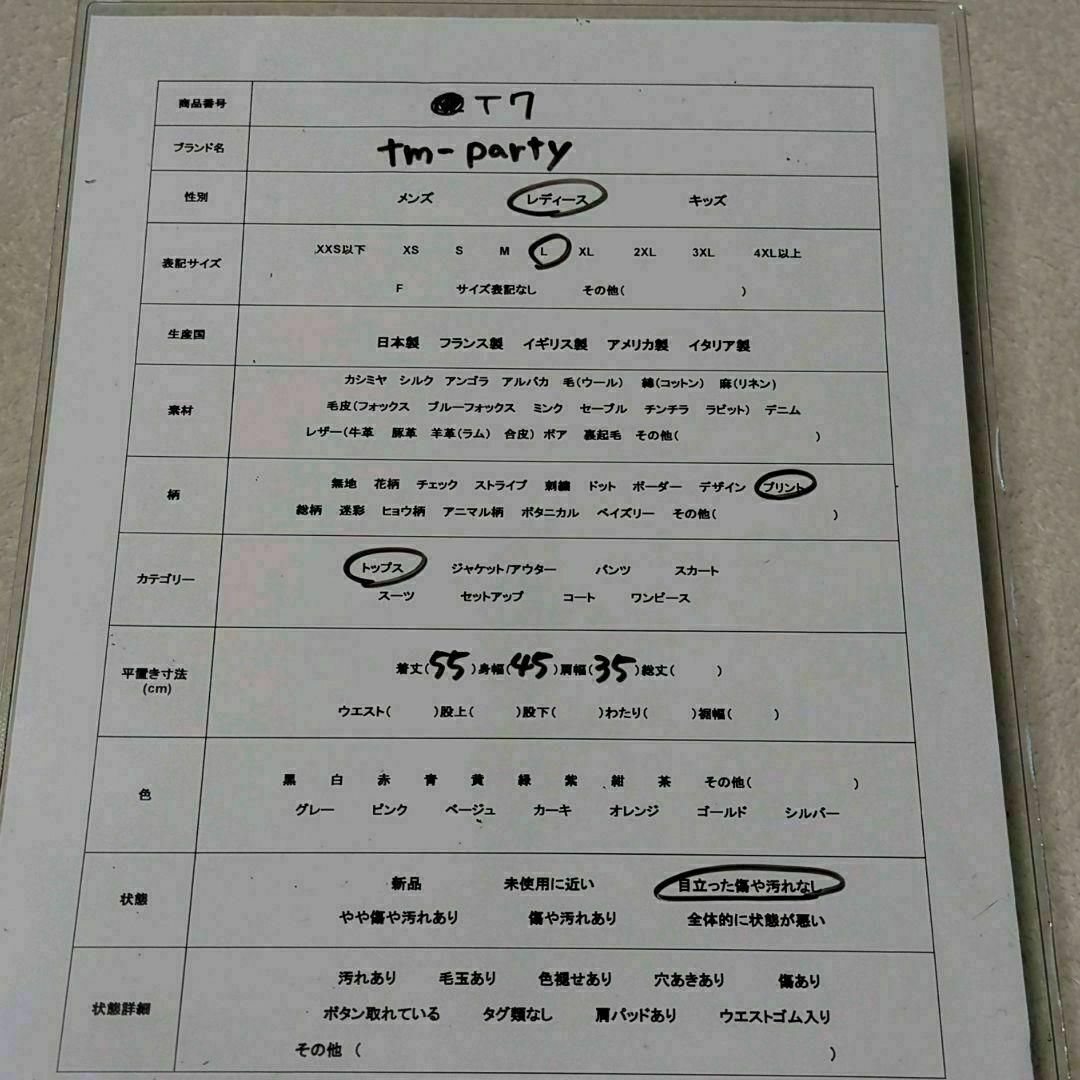 商品番号 T7
ブランド名 tm-party
性別 メンズ レディース キッズ
表記サイズ XXS以下 XS S M L XL 2XL 3XL 4XL以上
F サイズ表記なし その他( )
生産国 日本製 フランス製 イギリス製 アメリカ製 イタリア製
素材 カシミヤ シルク アンゴラ アルパカ 毛(ウール) 綿(コットン) 麻(リネン)
毛皮(フォックス ブルーフォックス ミンク セーブル チンチラ ラビット) デニム
レザー(牛革 豚革 羊革(ラム) 合皮) ボア 裏起毛 その他( )
柄 無地 花柄 チェック ストライプ 刺繍 ドット ボーダー デザイン プリント
総柄 迷彩 ヒョウ柄 アニマル柄 ボタニカル ペイズリー その他( )
カテゴリー トップス ジャケット/アウター パンツ スカート
スーツ セットアップ コート ワンピース
平置き寸法 (cm) 着丈(55)身幅(45)肩幅(35)総丈( )
ウエスト( )股上( )股下( )わたり( )裾幅( )
色 黒 白 赤 青 黄 緑 紫 紺 茶 その他( )
グレー ピンク ベージュ カーキ オレンジ ゴールド シルバー
状態 新品 未使用に近い 目立った傷や汚れなし
やや傷や汚れあり 傷や汚れあり 全体的に状態が悪い
状態詳細 汚れあり 毛玉あり 色褪せあり 穴あきあり 傷あり
ボタン取れている タグ類なし 肩パッドあり ウエストゴム入り
その他 ( )